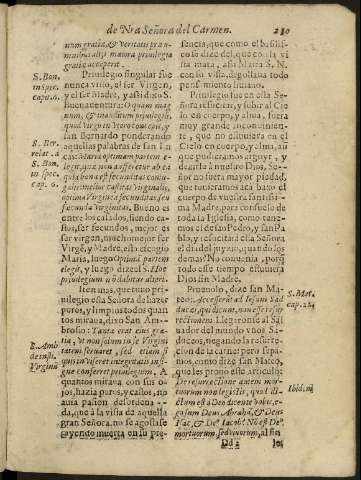 de Nra Señora del Carmen. 230
num gratiæ, & veritatis præ o-
mnibus aliis maiora privilegia
gratiæ acceperit.
Privilegio singular fue
nunca visto, el ser Virgen,
y el ser Madre, y assi dixo S.
Buenaventura: O quam mag-
num, & inauditum privilegiũ,
quod Virgo in vtero concepit, y
San Bernardo ponderando
aquellas palabras de san Lu
cas: Maria optimam partem e-
legit, quæ non auferetur ab ea
quia bona est fecunditas coniu-
galis, melior castitas Virginalis,
optima Virginea fecunditas, seu
fecunda Virginitas. Bueno es
entre los casados, siendo ca-
stos, ser fecundos, mejor es
ser virgen, mucho mejor ser
Virgẽ, y Madre, esta escogio
Maria, luego Optimã partem
elegit, y luego dize el S. Hoc
privilegium nõ dabitur alteri.
Item mas, que tuvo pri-
vilegio esta Señora de hazer
puros, y limpios todos quan
tos mirava, dixo San Am-
brosio: Tanta erat eius gra-
tia, vt non solum in se Virgini
tatem servaret, sed etiam si
quos inviseret integritatis insi-
gne conferret privilegium. A
quantos mirava con sus o-
jos, hazia puros, y castos, no
avia passion desordena-
da, que à la vista de aquella
gran Señora, no se agostasse
cayendo muerta en su pre-
S. Bon.
in spec.
cap. 6.
S. Ber.
S. Bon.
in spec.
cap. 6.
D. Amb
de instit.
Virginis
sencia, que como el basilis-
co se dize del, que con la vi
sta mata, assi Maria S. N.
con su vista, degollava todo
pensamiento liviano.
Privilegio fue de esta Señora
resucitar, y subir al Cie
lo en cuerpo, y alma, fuera
muy grande inconuinien-
te, que no estuviera en el
Cielo en cuerpo, y alma, aũ
que pudieramos argnyr, y
dezirle à nuestro Dios, Se-
ñor no fuera mayor piedad,
que tuvieramos acà baxo el
cuerpo de vuestra santissi-
ma Madre, para consuelo de
toda la Iglesia, como tene-
mos el de san Pedro, y san Pa
blo, y resucitarà esta Señora
el dia del juyzio, quando los
demas? No convenia, porq̃
todo este tiempo estuviera
Dios sin Madre.
Pruevolo, dize san Ma-
teo: Accesserũt ad Iesum Sad
ducæi, qui dicunt, non esse resur
rectionem. Llegaronse al Sal
uador del mundo vnos Sa-
duceos, negando la resurre-
ccion de la carne; pero sepa-
mos, como dize san Mateo,
que les provò este articulo:
De resurrectione autem mor-
tuorum non legistis, quod di-
ctum est a Deo dicente vobis, e-
go sum Deus Abrahã, & Deus
Isac, & De&#x27; Iacob? Nõ est De&#x27;
mortuorum, sed vivorum, al fin
S. Mat.
Ibid.
Dd 2 les